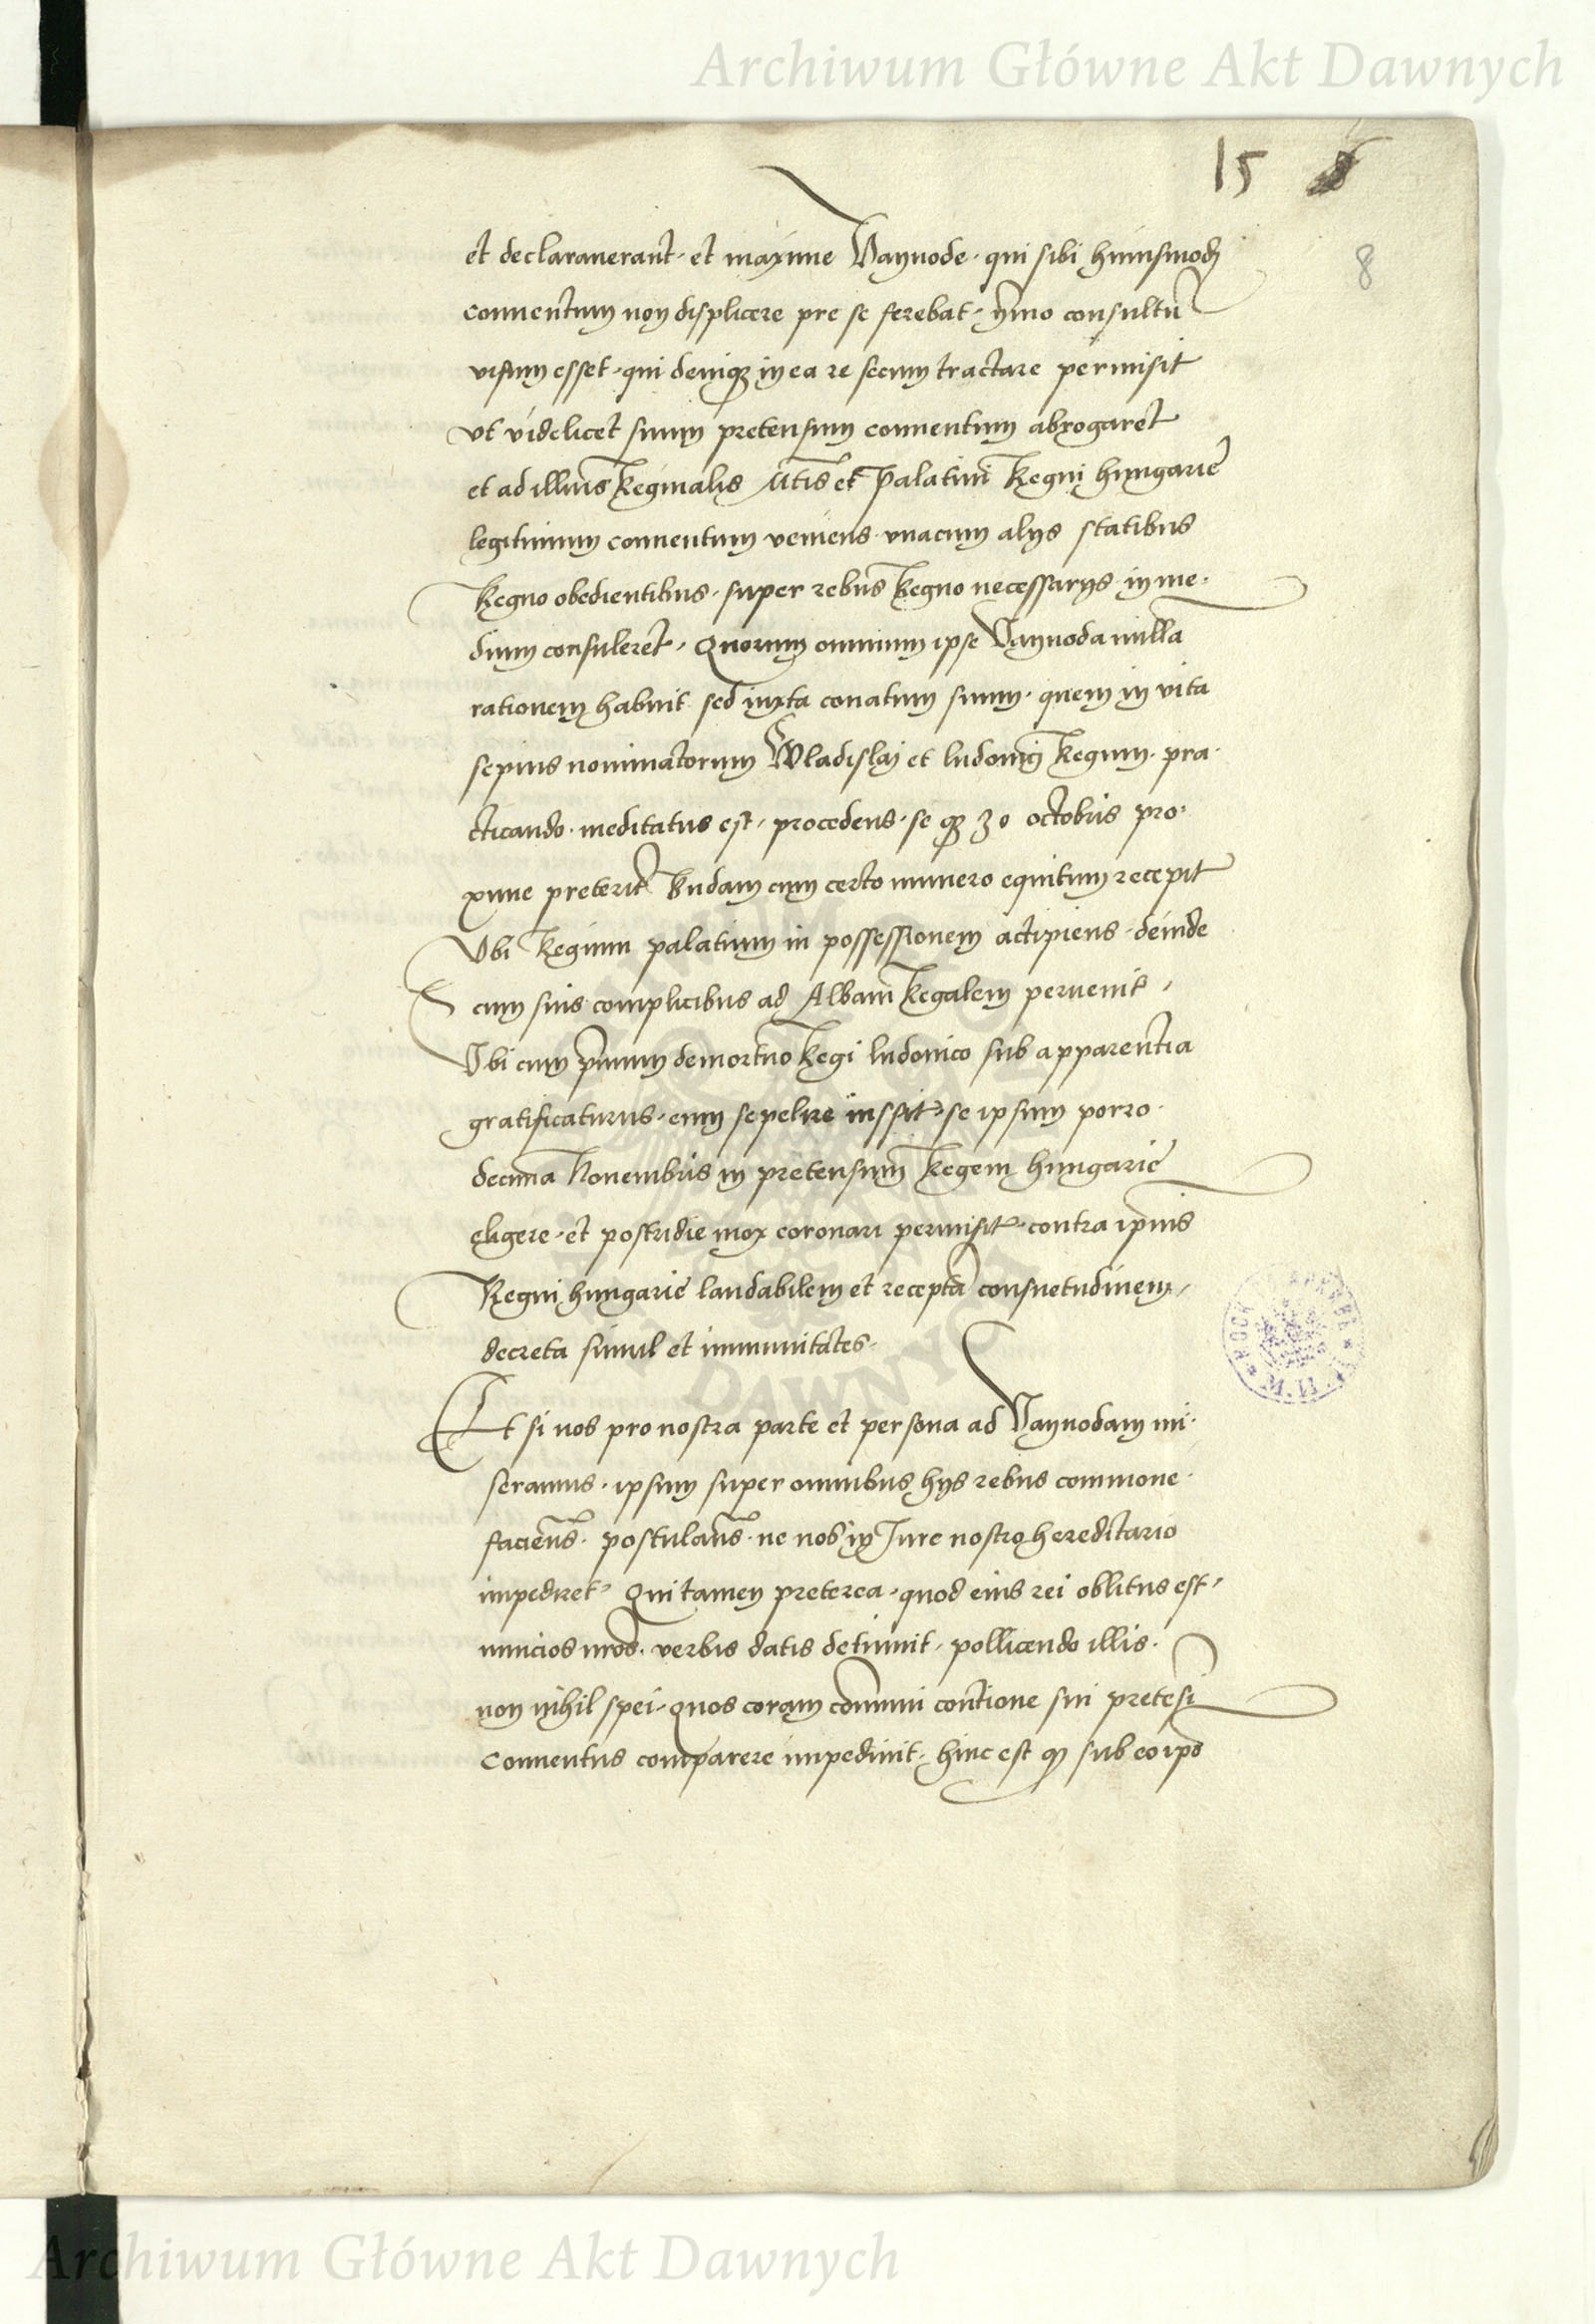 Archiwum Główne Akt Dawnych
15
8
et declarauerant · et maxime Vayuode · qui sibi huiusmodj
conuentum non displicere pre se ferebat · ymo consultu
visum esset · qui deniq3 in ea re secum tractare permisit
vt videlicet suum pretensum conuentum abrogaret
et ad illius Reginalis Mtis et Palatini Regni hungarie
legitimum conuentum veniens · vnacum alijs statibus
Regno obedientibus · super rebus Regno necessarijs in me-
dium consuleret · Quorum omnium ipse Vayuoda nulla
rationem habuit sed iuxta conatum suum · quem in vita
sepius nominatorum Wladislaj et ludouicj Regum · pra-
cticando · meditatus est · procedens · se q3 30 octobris pro-
xime preterit Budam cum certo numero equitum recepit
Vbi Regium palatium in possessionem accipiens · deinde
cum suis complicibus ad Albam Regalem peruenit ·
Vbi cum primum demortuo Regi ludouico sub apparentia
gratificaturus · eum sepelire iussit · se ipsum porro ·
decima Nouembris in pretensum Regem hungarie
eligere · et postridie mox coronari permisit · contra ipius
Regni hungarie laudabilem et recepta consuetudinem ·
decreta simul et immunitates ·
Et si nos pro nostra parte et persona ad Vayuodam mi-
seramus · ipsum super omnibus hijs rebus commone-
faciens · postulans · ne nos in Iure nostro hereditario
impediret · Qui tamen preterea · quod eius rei oblitus est ·
nuncios nros · verbis datis detinuit · pollicendo illis ·
non nihil spei · Quos coram comuni contione sui pretesi
Conuentus comparere impediuit · hinc est q sub eo ipo
DAWNYCH
Archiwum Główne Akt Dawnych